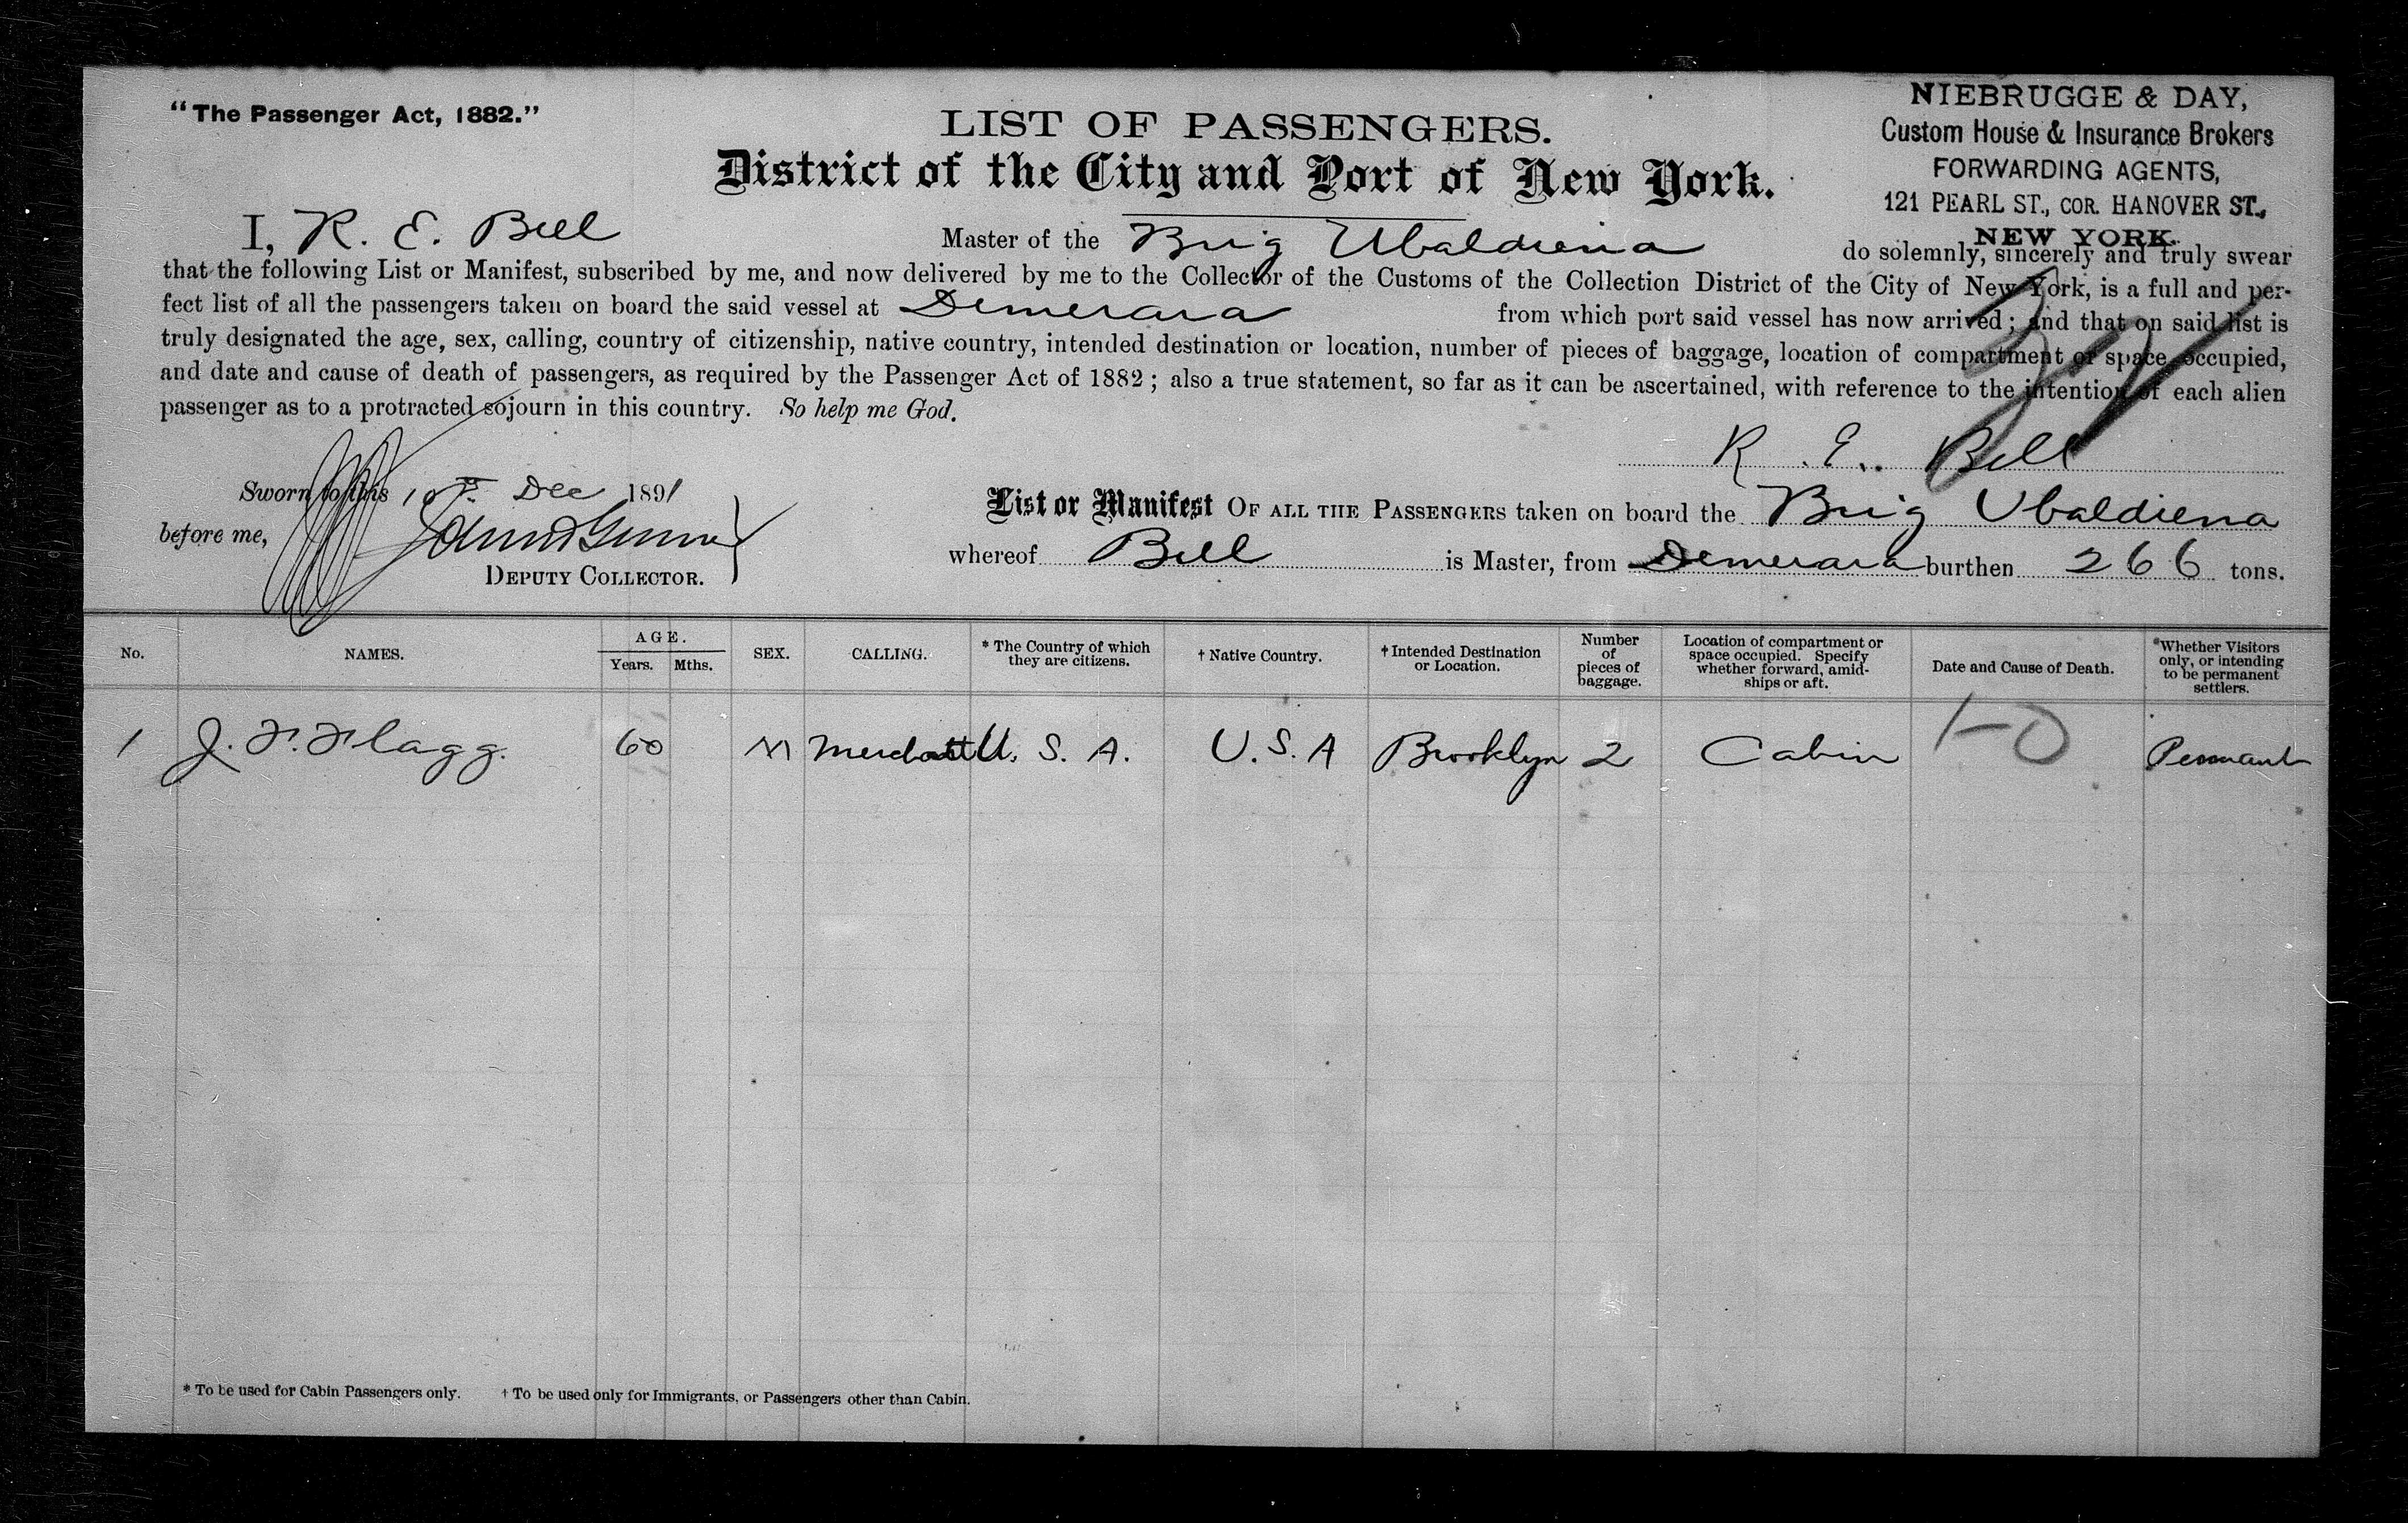 "The Passenger Act, 1882."
LIST OF PASSENGERS.
District of the City and Port of New York.
NIEBRUGGE & DAY,
Custom House & Insurance Brokers
FORWARDING AGENTS,
121 PEARL ST., COR. HANOVER ST.,
NEW YORK.
I, R. E. Bell Master of the Brig Ubaldiena do solemnly, sincerely and truly swear
that the following List or Manifest, subscribed by me, and now delivered by me to the Collector of the Customs of the Collection District of the City of New York, is a full and per-
fect list of all the passengers taken on board the said vessel at Demerara from which port said vessel has now arrived; and that on said list is
truly designated the age, sex, calling, country of citizenship, native country, intended destination or location, number of pieces of baggage, location of compartment or space occupied,
and date and cause of death of passengers, as required by the Passenger Act of 1882; also a true statement, so far as it can be ascertained, with reference to the intention of each alien
passenger as to a protracted sojourn in this country. So help me God.
R. E. Bell
Sworn to this Dec 1891
before me,
DEPUTY COLLECTOR.
List or Manifest OF ALL THE PASSENGERS taken on board the Brig Ubaldiena
whereof Bell is Master, from Demerara burthen 266 tons.
No. NAMES. AGE. Years. Mths. SEX. CALLING. * The Country of which they are citizens. † Native Country. † Intended Destination or Location. Number of pieces of baggage. Location of compartment or space occupied. Specify whether forward, amidships or aft. Date and Cause of Death. *Whether Visitors only, or intending to be permanent settlers.
1 J. F. Flagg. 60 M Merchant U. S. A. U. S. A Brooklyn 2 Cabin
* To be used for Cabin Passengers only. † To be used only for Immigrants, or Passengers other than Cabin.